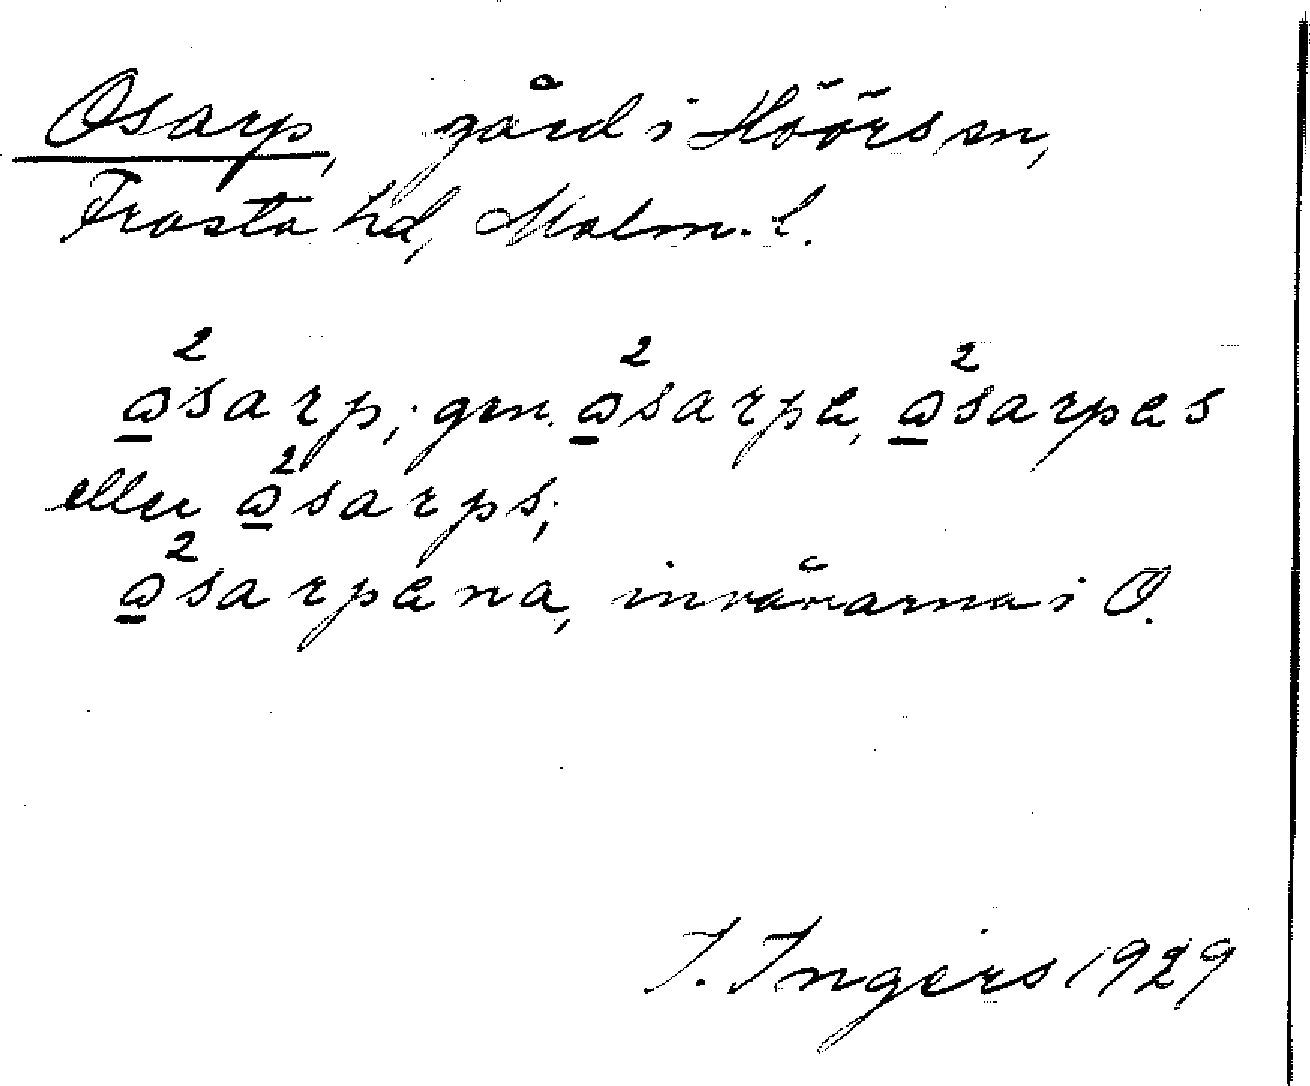 Osarp, gård i Höörs sn,
Frosta hd, Malm. l.
ɷ̲²sarp; gen. ɷ̲²sarpa, ɷ̲²sarpas
eller ɷ̲²sarps;
ɷ̲²sarpana, invånarna i O.
I. Ingers 1929